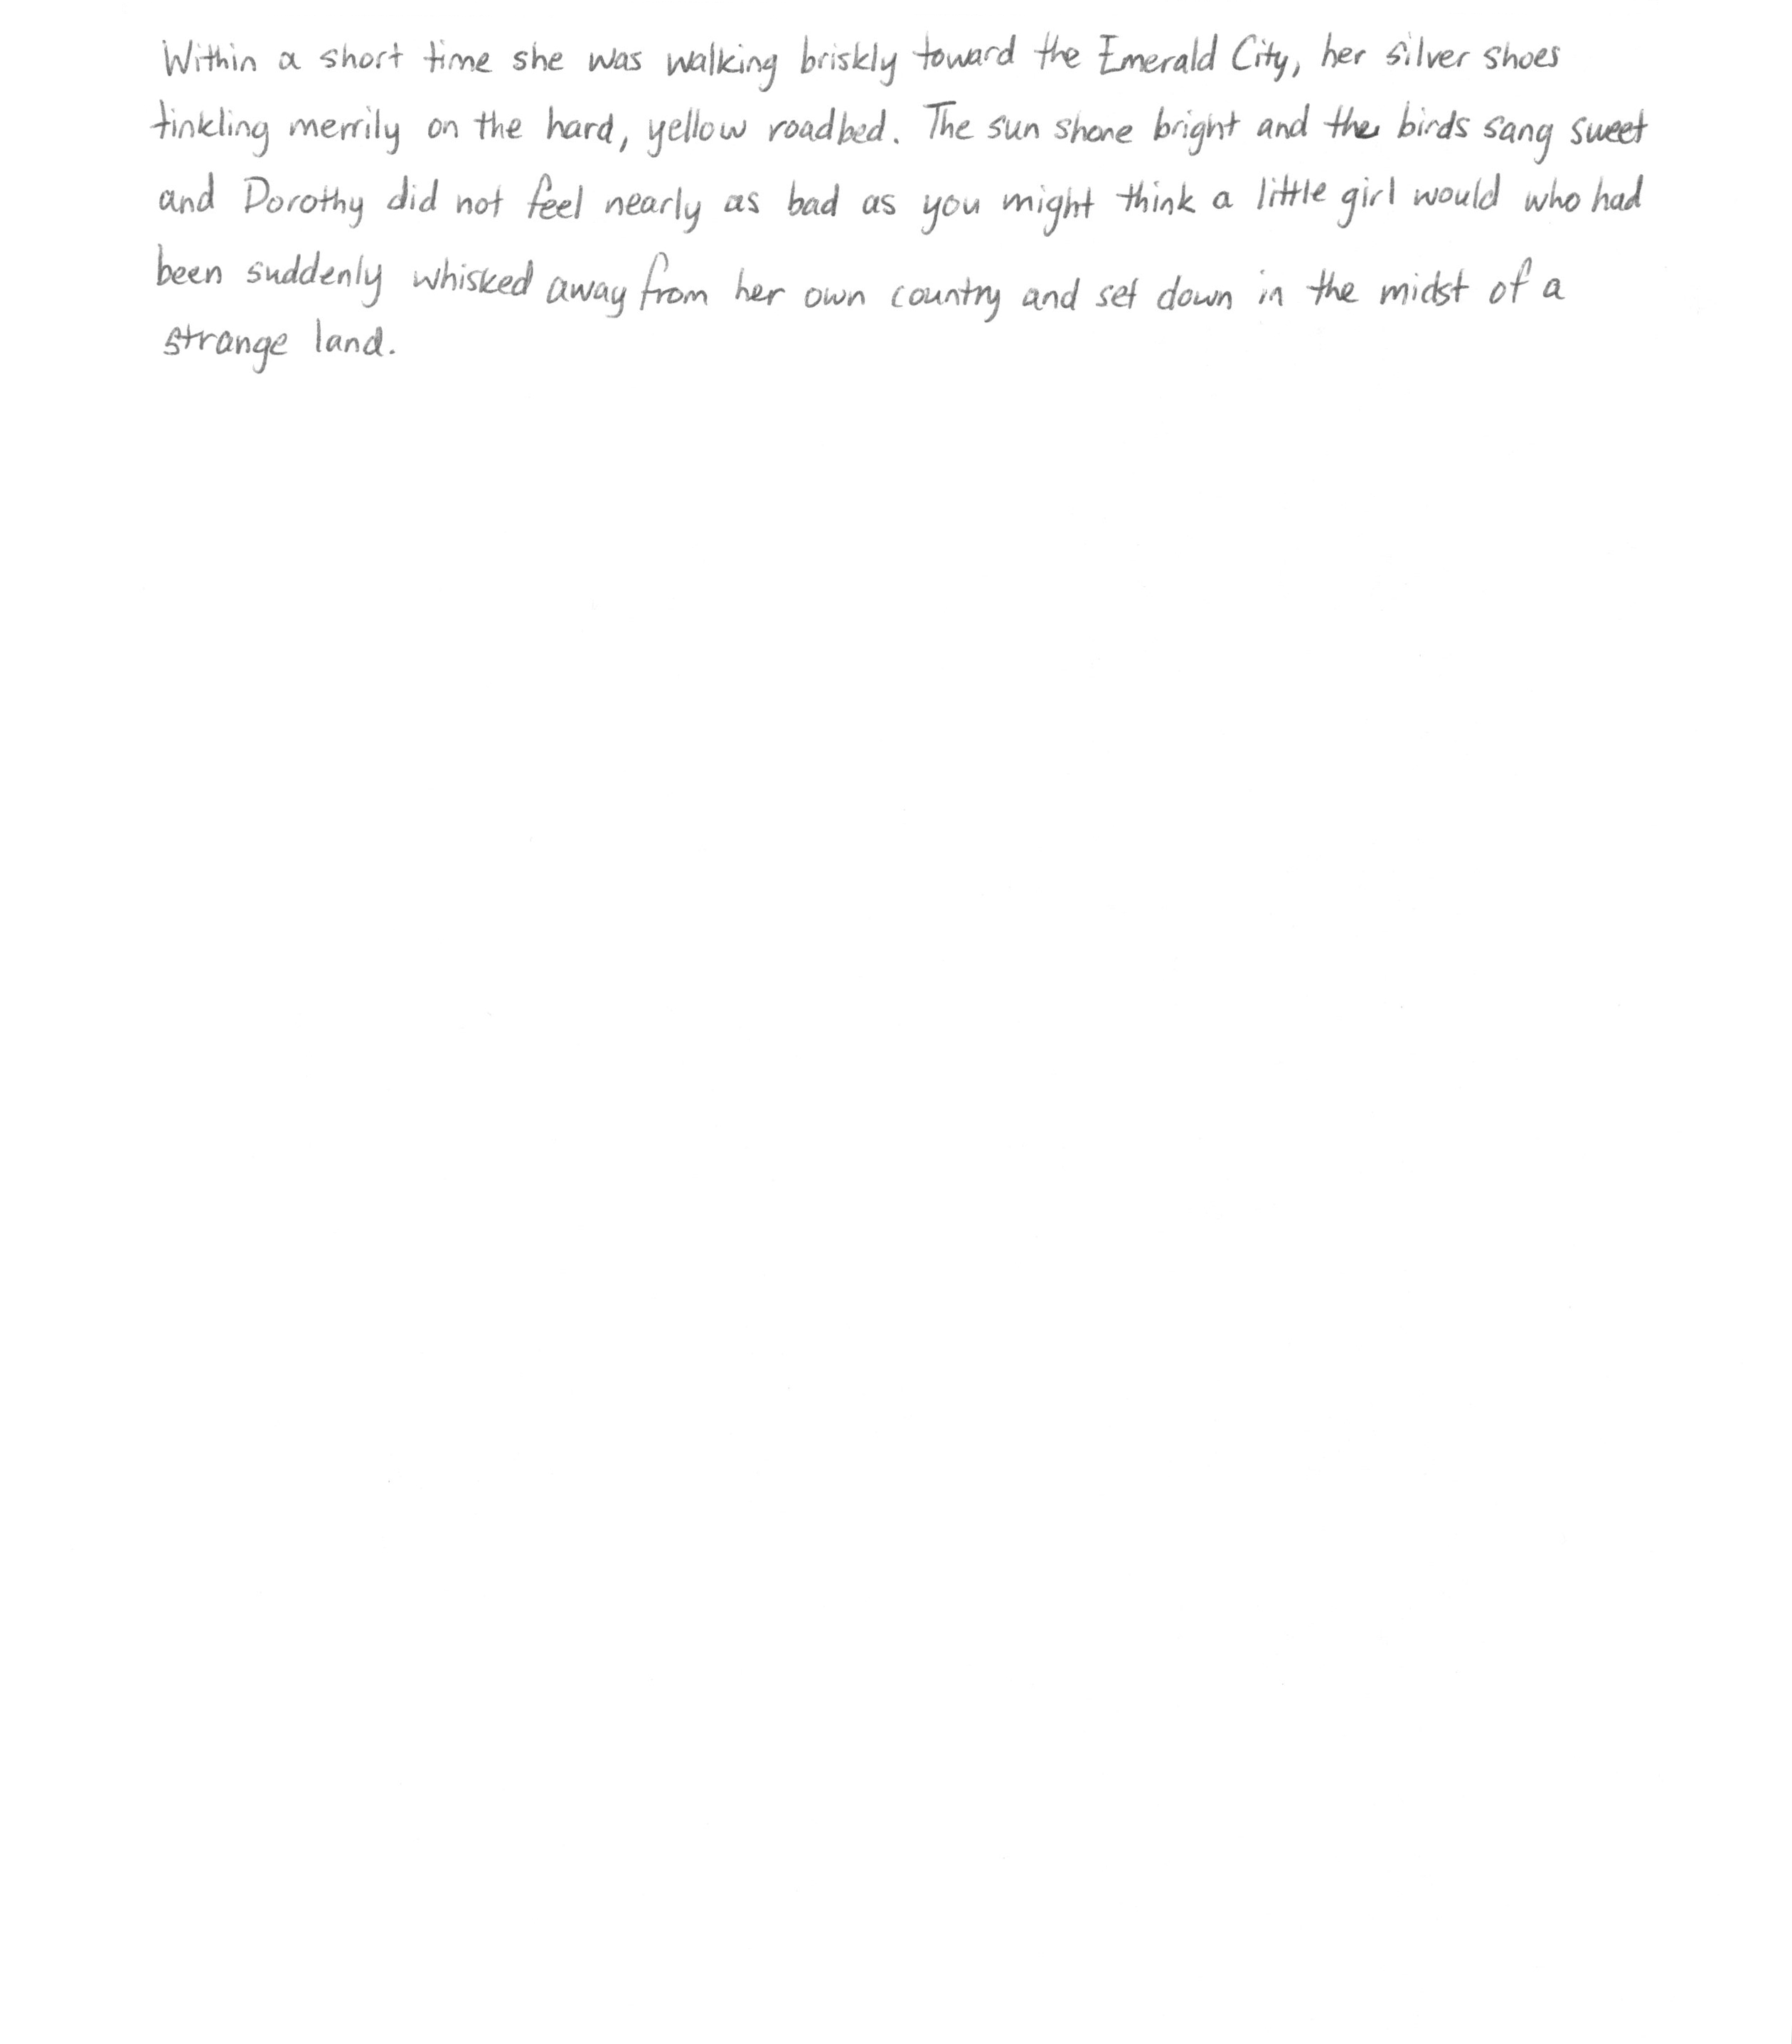 Within a short time she was walking briskly toward the Emerald City, her silver shoes
tinkling merrily on the hard, yellow roadbed. The sun shone bright and the birds sang sweet
and Dorothy did not feel nearly as bad as you might think a little girl would who had
been suddenly whisked away from her own country and set down in the midst of a
strange land.